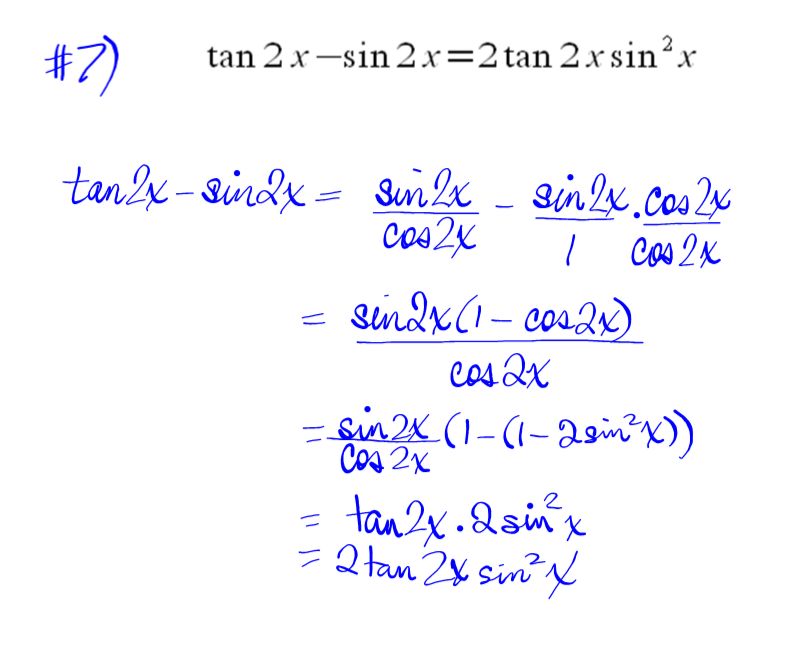 #7) tan 2x−sin 2x=2 tan 2x sin²x
tan2x − sin2x = sin2x/cos2x − sin2x/1 · cos2x/cos2x
= sin2x(1 − cos2x)/cos2x
= sin2x/cos2x (1−(1−2sin²x))
= tan2x · 2sin²x
= 2tan 2x sin²x